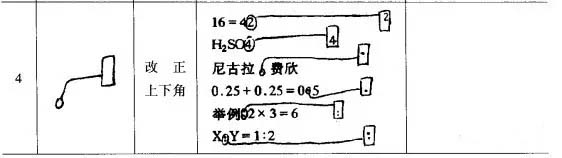 4
改正
上下角
16=42 2
H₂SO4 4
尼古拉 费欣 ·
0.25+0.25=0·5 .
举例 2×3=6 :
X Y=1:2 :